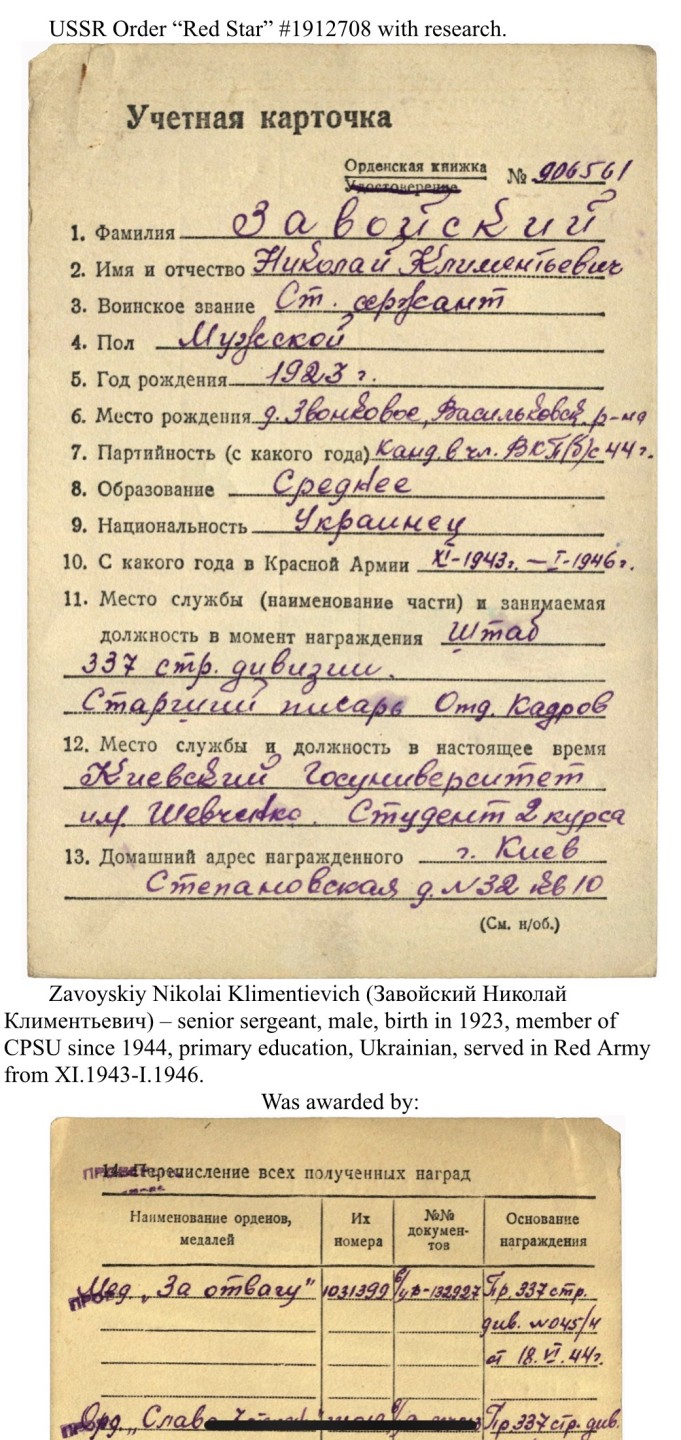 USSR Order “Red Star” #1912708 with research.
Учетная карточка
Орденская книжка
Удостоверение № 906561
1. Фамилия Завойский
2. Имя и отчество Николай Климентьевич
3. Воинское звание Ст. сержант
4. Пол Мужской
5. Год рождения 1923 г.
6. Место рождения д. Звонковое, Васильковск. р-на
7. Партийность (с какого года) канд. в чл. ВКП(б) с 44 г.
8. Образование Среднее
9. Национальность Украинец
10. С какого года в Красной Армии XI-1943г. – I-1946г.
11. Место службы (наименование части) и занимаемая
должность в момент награждения Штаб
337 стр. дивизии.
Старший писарь Отд. Кадров
12. Место службы и должность в настоящее время
Киевский Госуниверситет
им Шевченко. Студент 2 курса
13. Домашний адрес награжденного г. Киев
Степановская д. N 32 кв 10
(См. н/об.)
Zavoyskiy Nikolai Klimentievich (Завойский Николай
Климентьевич) – senior sergeant, male, birth in 1923, member of
CPSU since 1944, primary education, Ukrainian, served in Red Army
from XI.1943-I.1946.
Was awarded by:
14. Перечисление всех полученных наград
Наименование орденов, медалей Их номера №№ докумен-тов Основание награждения
Мед. „За отвагу" 1031399 132927 Пр. 337 стр.
див. N 045/н
от 18.VI.44г.
Орд. „Слав Пр. 337 стр. див.